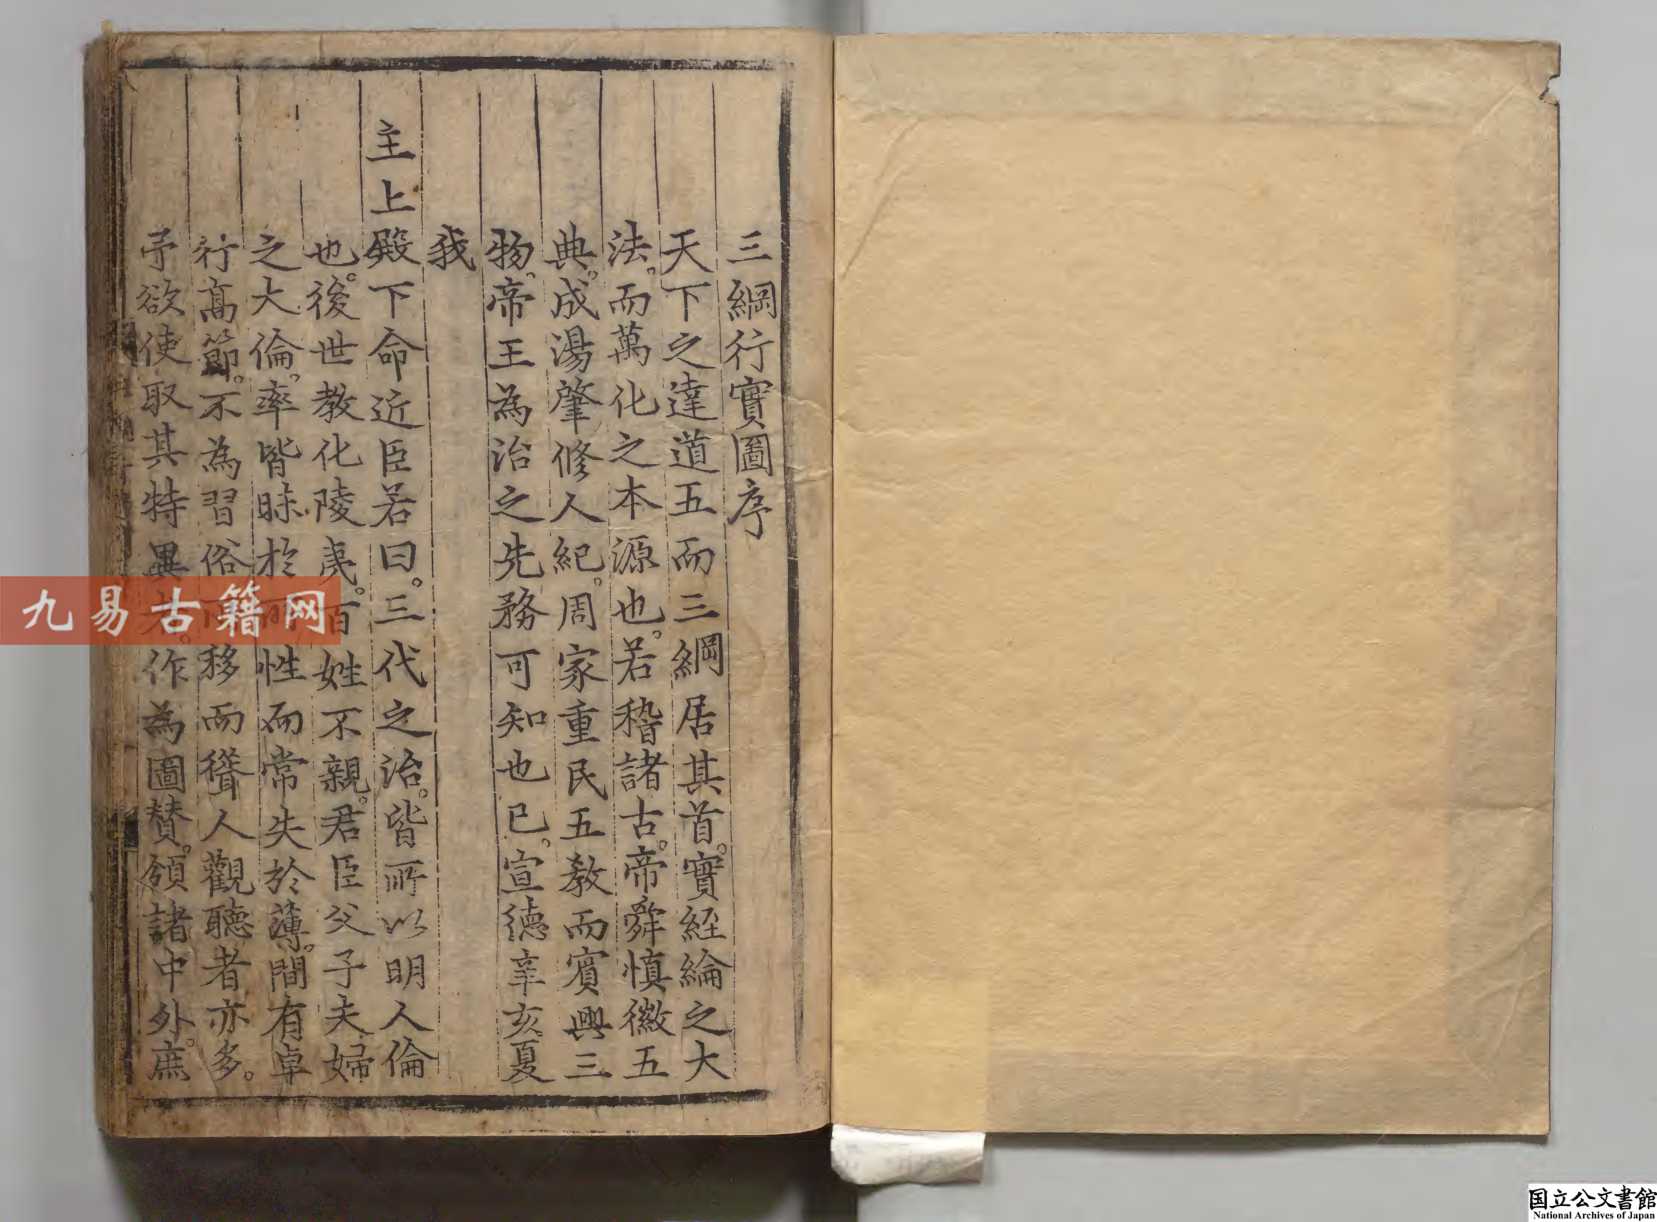 三綱行實圖序
天下之達道五而三綱居其首。實經綸之大
法。而萬化之本源也。若稽諸古。帝舜慎徽五
典。成湯肇修人紀。周家重民五教而賓興三
物。帝王為治之先務可知也已。宣德辛亥夏
我
主上殿下命近臣若曰。三代之治。皆所以明人倫
也。後世教化陵夷。百姓不親。君臣父子夫婦
之大倫。率皆昧於所性而常失於薄。間有卓
行高節。不為習俗所移而聳人觀聽者亦多。
予欲使取其特異者。作為圖賛。頒諸中外。庶
九易古籍网
国立公文書館
National Archives of Japan